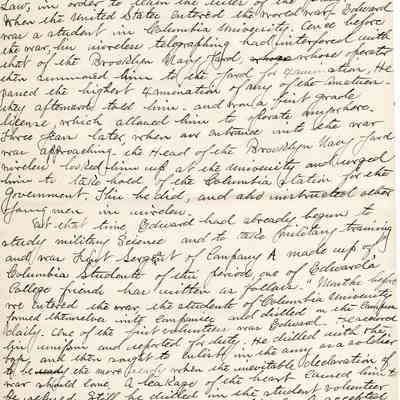 Law, in order to learn the rules of the
When the United States entered the world war, Edward
was a student in Columbia University. Once before
the war, his wireless telegraphing had interfered with
that of the Brooklyn Navy Yard, whose operator
then summoned him to the Yard for examination. He
passed the highest examination of any of the
they afterwards told him. and won a first grade
license, which allowed him to operate anywhere.
Three years later, when our entrance into the war
was approaching, the Head of the Brooklyn Navy Yard
wireless looked him up, at the University and urged
him to take hold of the Columbia Station for the
Government. This he did, and also instructed other
young men in wireless.
At that time, Edward had already begun to
study military Science and to take military training
and was First Sergeant of Company A made up of
Columbia Students. Of this period, one of Edward's
College friends has written as follows. "Months before
we entered the war, the students of Columbia University
formed themselves into Companies and drilled on the Campus
daily. One of the first volunteers was Edward. I
his uniform and reported for duty. He drilled with the
boys and then sought to enlist in the army as a soldier
to be ready the more when the inevitable declaration of
war should come. A leakage of the heart caused him to
be refused. Still he drilled in the student volunteer
accepted